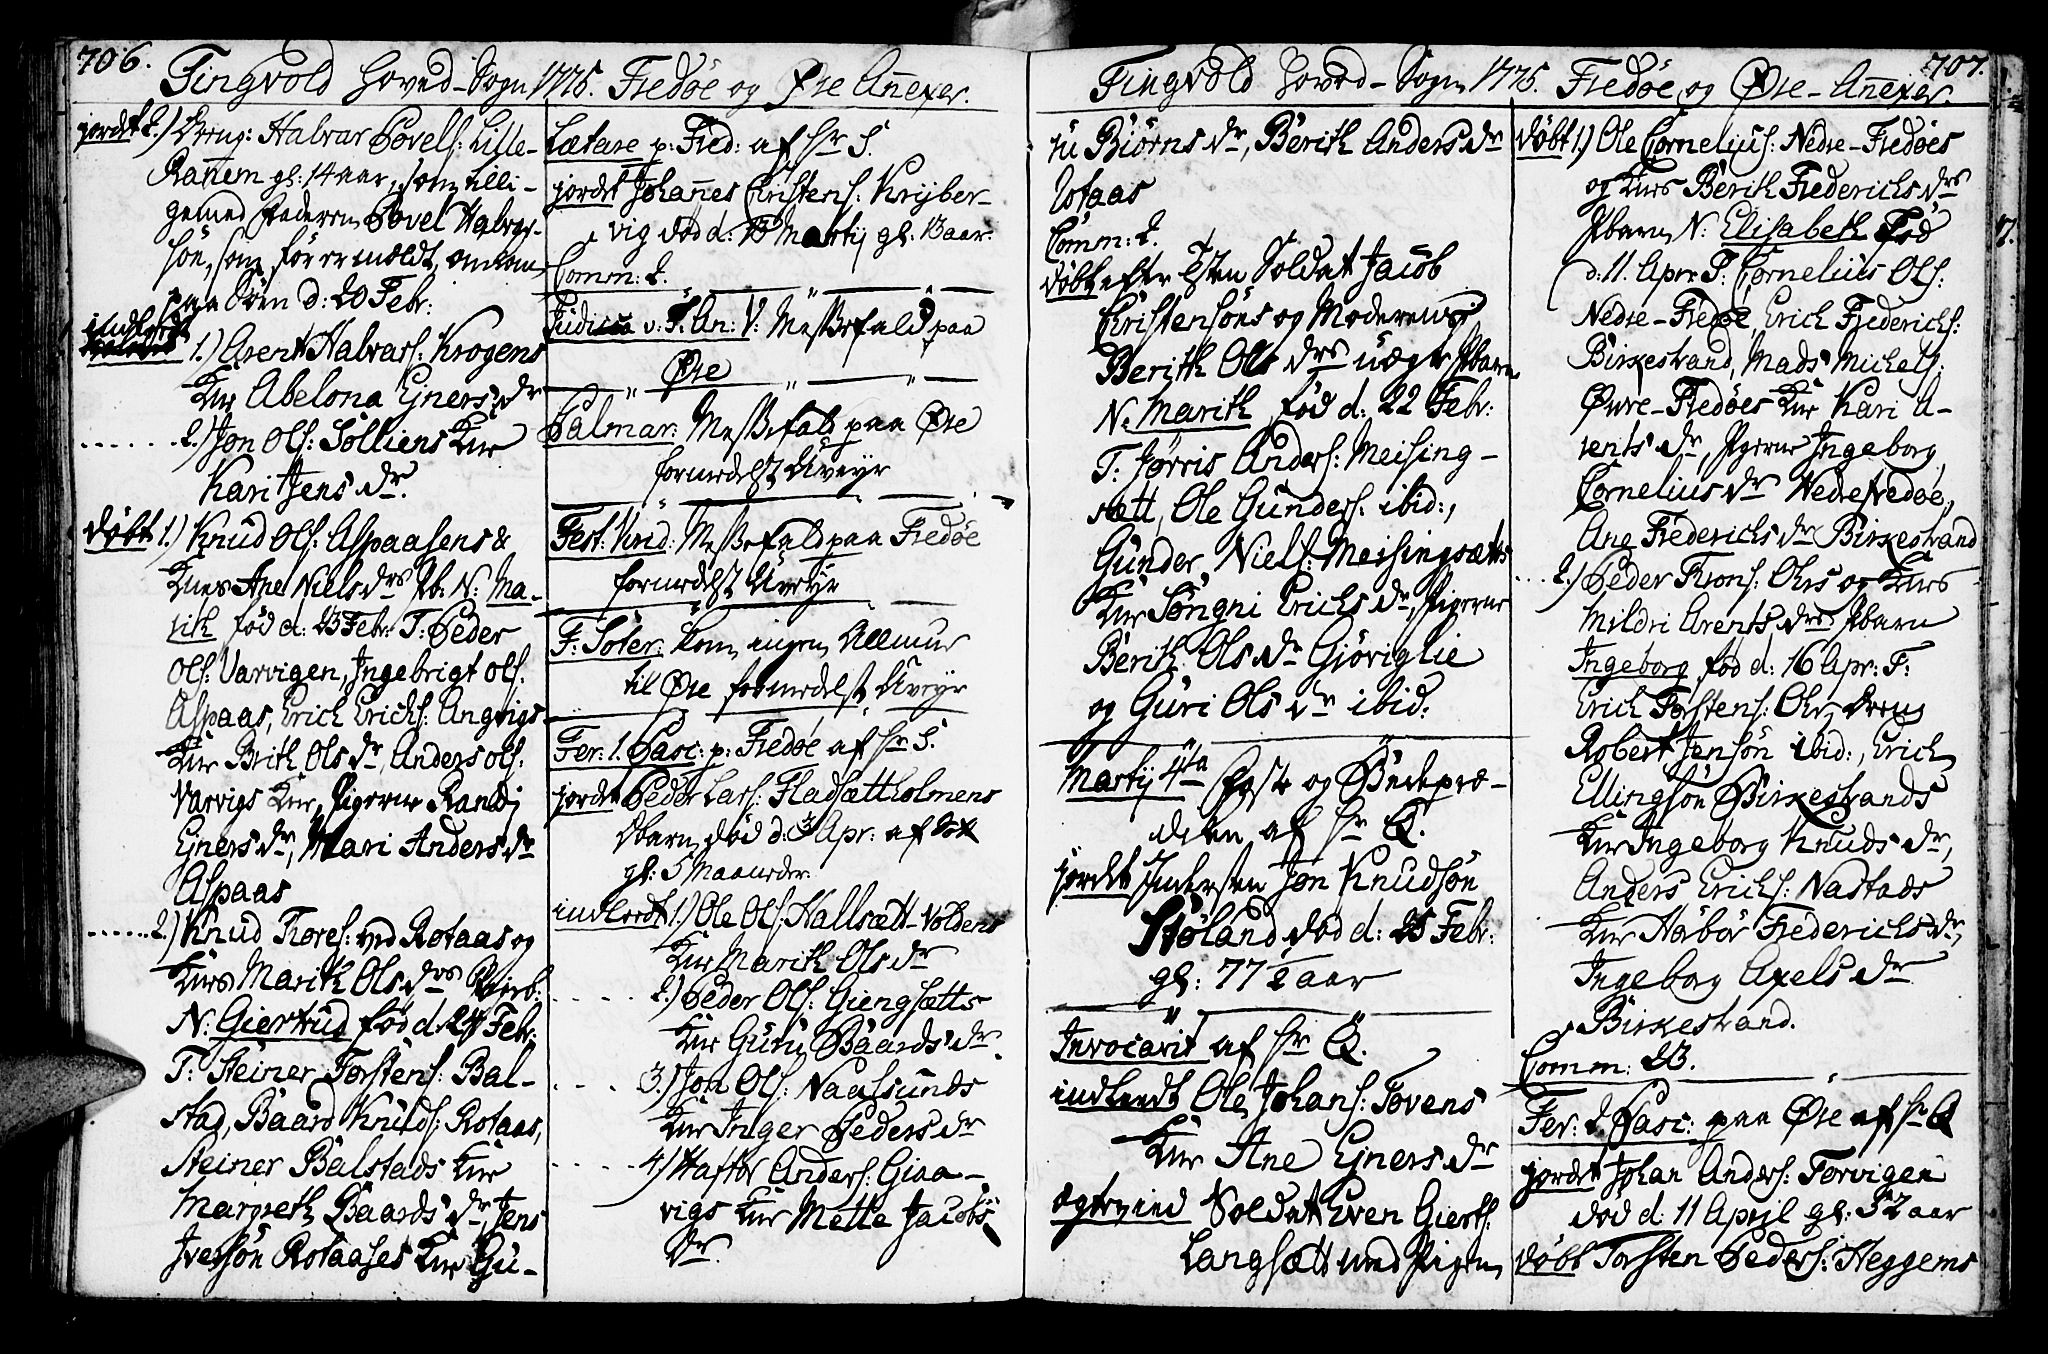 706.
Tingvold Hoved-Sogn 1775. Fredøe og Øre Añexer.
jordet 2.) Dreng: Halvar Povels: Lille-
Rañem gl: 14 aar, som tilli-
gemed Faderen Povel Halvor-
sön, som för er meldt, omkom
paa Söen d: 20 Febr:
indledt 1.) Arent Halvars: Krogens
Kue Abelona Ejners Dr
2.) Jon Ols: Solliens Kue
Kari Jens Dr.
Döbt 1.) Knud Ols: Aspaasens &
Kues Ane Niels Drs Pb: N: Ma-
rith född: 23 Febr: T: Peder
Ols: Varvigen, Ingebrigt Ols:
Aspaas, Erich Erichs: Angvigs
Kue Brith Ols Dr, Anders Ols:
Varvigs Kue, Pigerne Randj
Ejners Dr, Mari Anders Dr
Aspaas
2.) Knud Tores: ved Rotaas og
Kues Marith Ols Drs Pigeb:
N: Giertrud född: 24 Febr:
T: Steiner Torstens: Bal-
stad, Baard Knuds: Rotaas,
Steiner Balstads Kue
Margreth Baards Dr, Jens
Iversön Rotaases Kue Gu-
Lætare p: Fred: af Hr S.
jordet Johañes Christens: Krijber-
vig död d: 13 Martij gl: 13 aar:
Comm: 2.
Judica v: F: An: V: Messefald paa
Øre
Palmar: Messefald paa Øre
formedelst Uveyr
Fest: Virid: Messefald paa Fredøe
formedelst Uveyr
F: Soler: kom ingen Allmue
til Øre formedelst Uveyr
Fer: 1. Pasc: p: Fredøe af Hr S.
jordet Peder Lars: Fladsættholmens
Dbarn, död d: 3 Apr: af
gl: 5 Maaneder.
indledt 1.) Ole Ols: Hallsætt-Voldens
Kue Marith Ols Dr
2.) Peder Ols: Giengsætts
Kue Guri Baards Dr
3.) Jon Ols: Naalsunds
Kue Inger Peders Dr
4.) Haftor Anders: Giaa-
vigs Kue Mette Jacobs
Dr.
707.
Tingvold Hoved-Sogn 1775. Fredøe og Øre-Añexer.
ru Biörns Dr, Berith Anders Dr
Rotaas
Comm: 2.
döbt efter Tsten Soldat Jacob
Christensöns og Moderens
Berith Ols Drs uægte Pbarn
N: Marith född: 22 Febr:
T: Jörris Anders: Meising-
sett, Ole Gunders: ibid:,
Gunder Niels: Meisingsætts
Kue Söngni Erichs Dr, Pigerne
Berith Ols Dr Giöviglie
og Guri Ols Dr ibid:
Martij 4ta Faste og Bedepræ-
diken af Hr Q.
jordet Indersten Jon Knudsön
Stöland död d: 25 Febr:
gl: 77 1/2 aar
Invocavit af Hr Q.
indledt Ole Johans: Tovens
Kue Ane Ejners Dr
ægtevied Soldat Even Gierts:
Langsætt med Pigen
Döbt 1.) Ole Cornelius: Nedre-Fredöes
og Kues Berith Frederichs Drs
Pbarn N: Elisabeth Föd
d: 11. Apr: T: Cornelius Ols:
Nedre-Fredöe, Erich Frederichs:
Birkestrand, Mads Michels:
Øvre-Fredöes Kue Kari A-
rents Dr, Pigerne Ingeborg
Cornelius Dr Nedrefredöe,
Ane Frederichs Dr Birkestrand
2.) Peder Trons: Ohrs og Kues
Mildri Arents Drs Pbarn
Ingeborg född: 16 Apr: T:
Erich Torstens: Ohr, Dreng
Robert Jensön ibid:, Erich
Ellingsön Birkestrands
Kue Ingeborg Knuds Dr,
Anders Erichs: Nastads
Kue Haabör Frederichs Dr,
Ingeborg Axels Dr
Birkestrand.
Comm: 23.
Fer: 2 Pasc: paa Øre af Hr Q
jordet Johan Anders: Torvigen
död d: 11 April gl: 52 aar
döbt Torsten Peders: Heggems